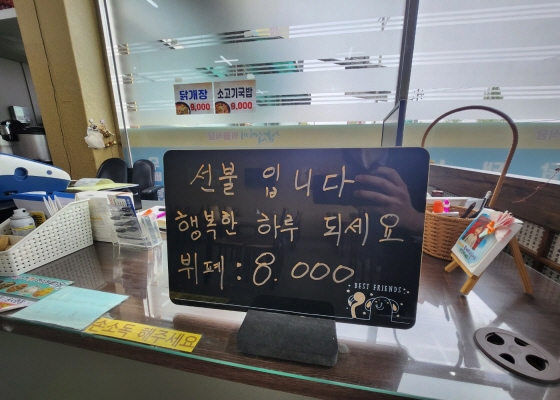 닭개장 소고기국밥
8,000 8,000
선불 입니다
행복한 하루 되세요
뷔폐 : 8.000
BEST FRIENDS
손소독 해주세요